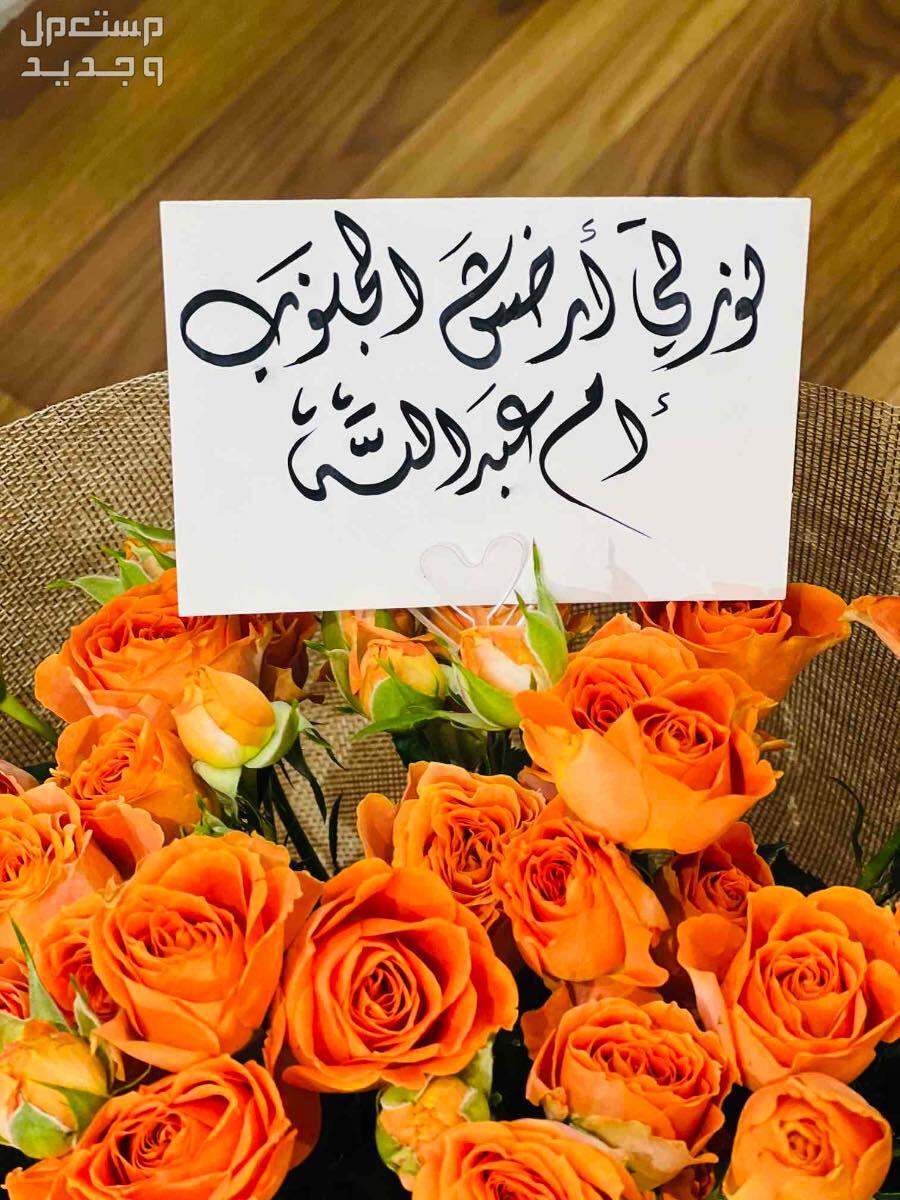 مستعمل
وجديد
لوز طي أرض الجنوب
أم عبدالله